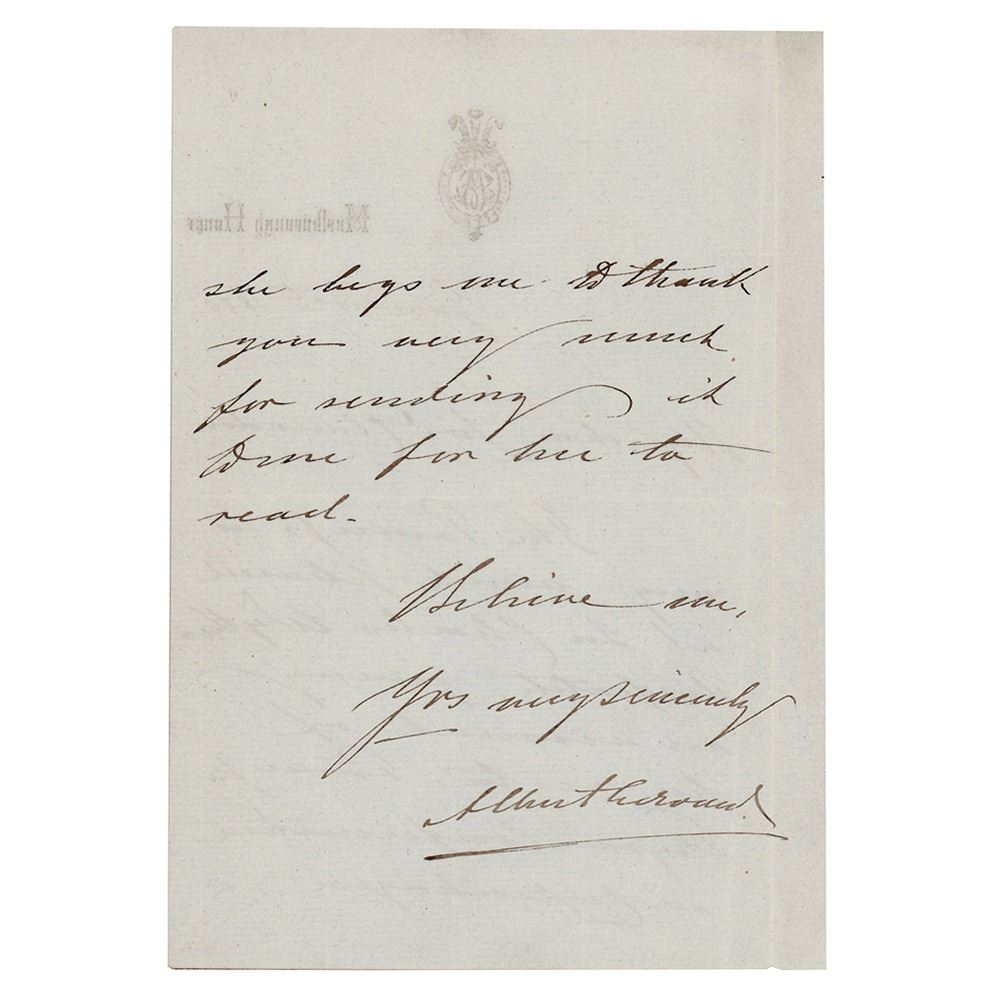 Marlborough House
she begs me to thank
you very much
for sending it
to me for her to
read.
Believe me,
Yrs very sincerely
Albert Edward.